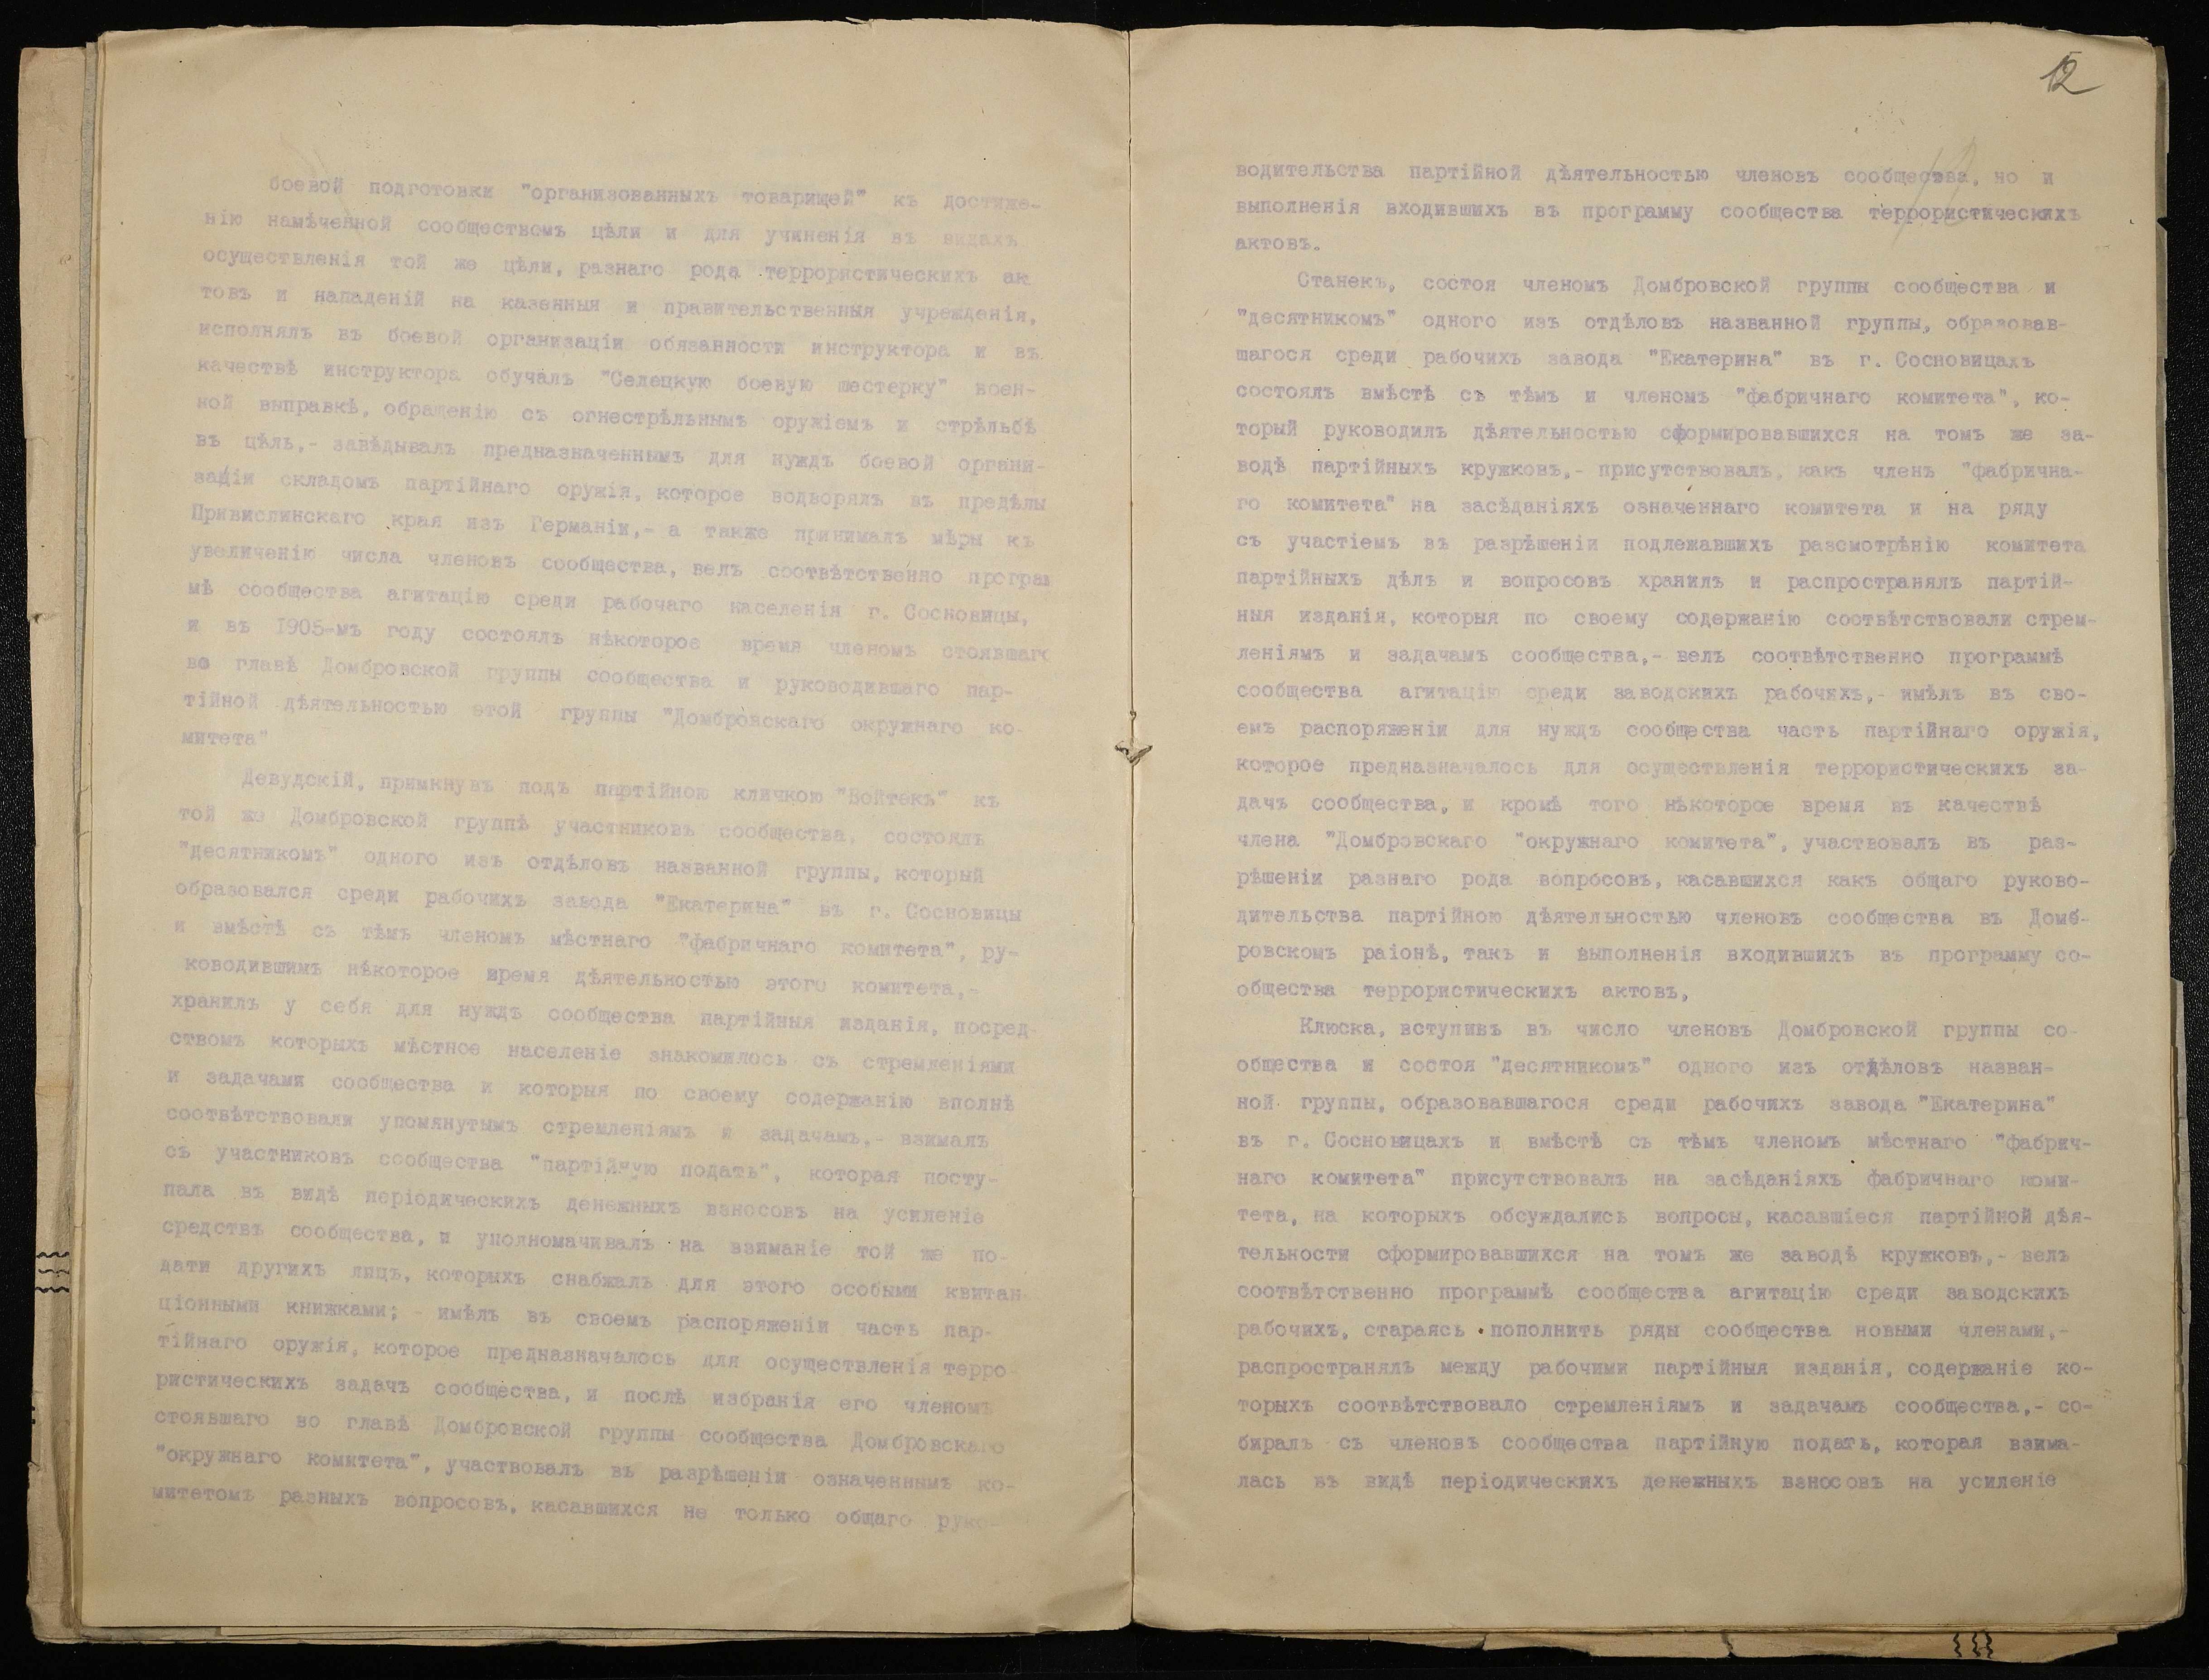 боевой подготовки "организованныхъ товарищей" къ достиже-
нію намѣченной сообществомъ цѣли и для учиненія въ видахъ
осуществленія той же цѣли, разнаго рода террористическихъ ак
товъ и нападеній на казенныя и правительственныя учрежденія,
исполнялъ въ боевой организаціи обязанности инструктора и въ
качествѣ инструктора обучалъ "Селецкую боевую шестерку" воен-
ной выправкѣ, обращенію съ огнестрѣльнымъ оружіемъ и стрѣльбѣ
въ цѣль,- завѣдывалъ предназначеннымъ для нуждъ боевой органи-
заціи складомъ партійнаго оружія, которое водворялъ въ предѣлы
Привислинскаго края изъ Германіи,- а также принималъ мѣры къ
увеличенію числа членовъ сообщества, велъ соотвѣтственно програм
мѣ сообщества агитацію среди рабочаго населенія г. Сосновицы,
и въ 1905-мъ году состоялъ нѣкоторое время членомъ стоявшаго
во главѣ Домбровской группы сообщества и руководившаго пар-
тійной дѣятельностью этой группы "Домбровскаго окружнаго ко-
митета"
Девудскій, примкнувъ подъ партійною кличкою "Войтекъ" къ
той же Домбровской группѣ участниковъ сообщества, состоялъ
"десятникомъ" одного изъ отдѣловъ названной группы, который
образовался среди рабочихъ завода "Екатерина" въ г. Сосновицы
и вмѣстѣ съ тѣмъ членомъ мѣстнаго "фабричнаго комитета", ру-
ководившимъ нѣкоторое время дѣятельностью этого комитета,-
хранилъ у себя для нуждъ сообщества партійныя изданія, посред-
ствомъ которыхъ мѣстное населеніе знакомилось съ стремленіями
и задачами сообщества и которыя по своему содержанію вполнѣ
соотвѣтствовали упомянутымъ стремленіямъ и задачамъ,- взималъ
съ участниковъ сообщества "партійную подать", которая посту-
пала въ видѣ періодическихъ денежныхъ взносовъ на усиленіе
средствъ сообщества, и уполномачивалъ на взиманіе той же по-
дати другихъ лицъ, которыхъ снабжалъ для этого особыми квитан-
ціонными книжками; - имѣлъ въ своемъ распоряженіи часть пар-
тійнаго оружія, которое предназначалось для осуществленія терро
ристическихъ задачъ сообщества, и послѣ избранія его членомъ
стоявшаго во главѣ Домбровской группы сообщества Домбровскаго
"окружнаго комитета", участвовалъ въ разрѣшеніи означеннымъ ко-
митетомъ разныхъ вопросовъ, касавшихся не только общаго руко-
12
водительства партійной дѣятельностью членовъ сообщества, но и
выполненія входившихъ въ программу сообщества террористическихъ
актовъ.
Станекъ, состоя членомъ Домбровской группы сообщества и
"десятникомъ" одного изъ отдѣловъ названной группы, образовав-
шагося среди рабочихъ завода "Екатерина" въ г. Сосновицахъ
состоялъ вмѣстѣ съ тѣмъ и членомъ "фабричнаго комитета", ко-
торый руководилъ дѣятельностью сформировавшихся на томъ же за-
водѣ партійныхъ кружковъ,- присутствовалъ, какъ членъ "фабрична-
го комитета" на засѣданіяхъ означеннаго комитета и на ряду
съ участіемъ въ разрѣшеніи подлежавшихъ разсмотрѣнію комитета
партійныхъ дѣлъ и вопросовъ хранилъ и распространялъ партій-
ныя изданія, которыя по своему содержанію соотвѣтствовали стрем-
леніямъ и задачамъ сообщества,- велъ соотвѣтственно программѣ
сообщества агитацію среди заводскихъ рабочихъ,- имѣлъ въ сво-
емъ распоряженіи для нуждъ сообщества часть партійнаго оружія,
которое предназначалось для осуществленія террористическихъ за-
дачъ сообщества, и кромѣ того нѣкоторое время въ качествѣ
члена "Домбровскаго "окружнаго комитета", участвовалъ въ раз-
рѣшеніи разнаго рода вопросовъ, касавшихся какъ общаго руково-
дительства партійною дѣятельностью членовъ сообщества въ Домб-
ровскомъ раіонѣ, такъ и выполненія входившихъ въ программу со-
общества террористическихъ актовъ,
Клюска, вступивъ въ число членовъ Домбровской группы со-
общества и состоя "десятникомъ" одного изъ отдѣловъ назван-
ной группы, образовавшагося среди рабочихъ завода "Екатерина"
въ г. Сосновицахъ и вмѣстѣ съ тѣмъ членомъ мѣстнаго "фабрич-
наго комитета" присутствовалъ на засѣданіяхъ фабричнаго коми-
тета, на которыхъ обсуждались вопросы, касавшіеся партійной дѣя-
тельности сформировавшихся на томъ же заводѣ кружковъ,- велъ
соотвѣтственно программѣ сообщества агитацію среди заводскихъ
рабочихъ, стараясь пополнить ряды сообщества новыми членами,-
распространялъ между рабочими партійныя изданія, содержаніе ко-
торыхъ соотвѣтствовало стремленіямъ и задачамъ сообщества,- со-
биралъ съ членовъ сообщества партійную подать, которая взима-
лась въ видѣ періодическихъ денежныхъ взносовъ на усиленіе